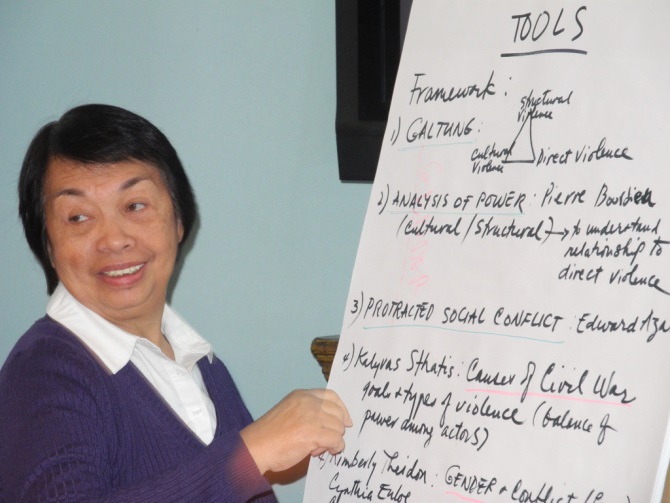 TOOLS
Framework:
1) GALTUNG:
structural
violence
Cultural
violence
Direct Violence
2) ANALYSIS OF POWER: Pierre
(Cultural/Structural) → to understand
relationship to
direct violence
3) PROTRACTED SOCIAL CONFLICT: Edward Aza
4) Kalyvas Stratis: Causes of Civil War
goals + types of violence (balance of
power among actors)
Kimberly Theidon: GENDER + Conflict
Cynthia Enloe